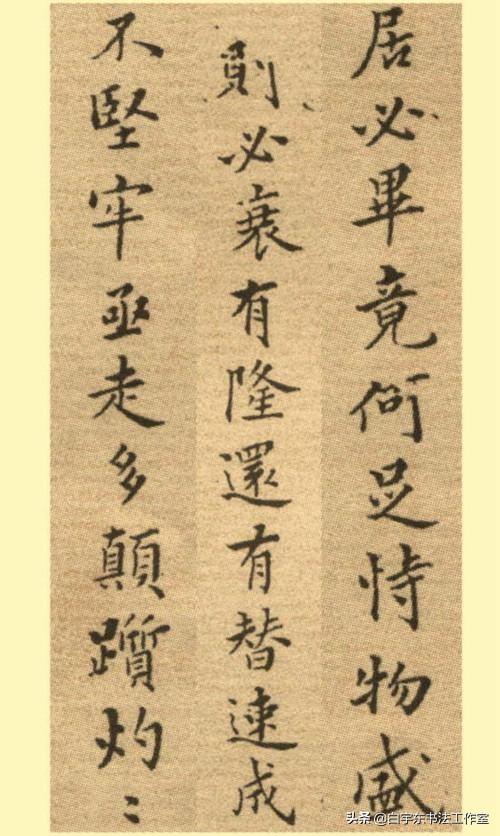 居必畢竟何足恃物盛
則必衰有隆還有替速成
不堅牢亟走多顛躓灼〻
头条@白宇东书法工作室